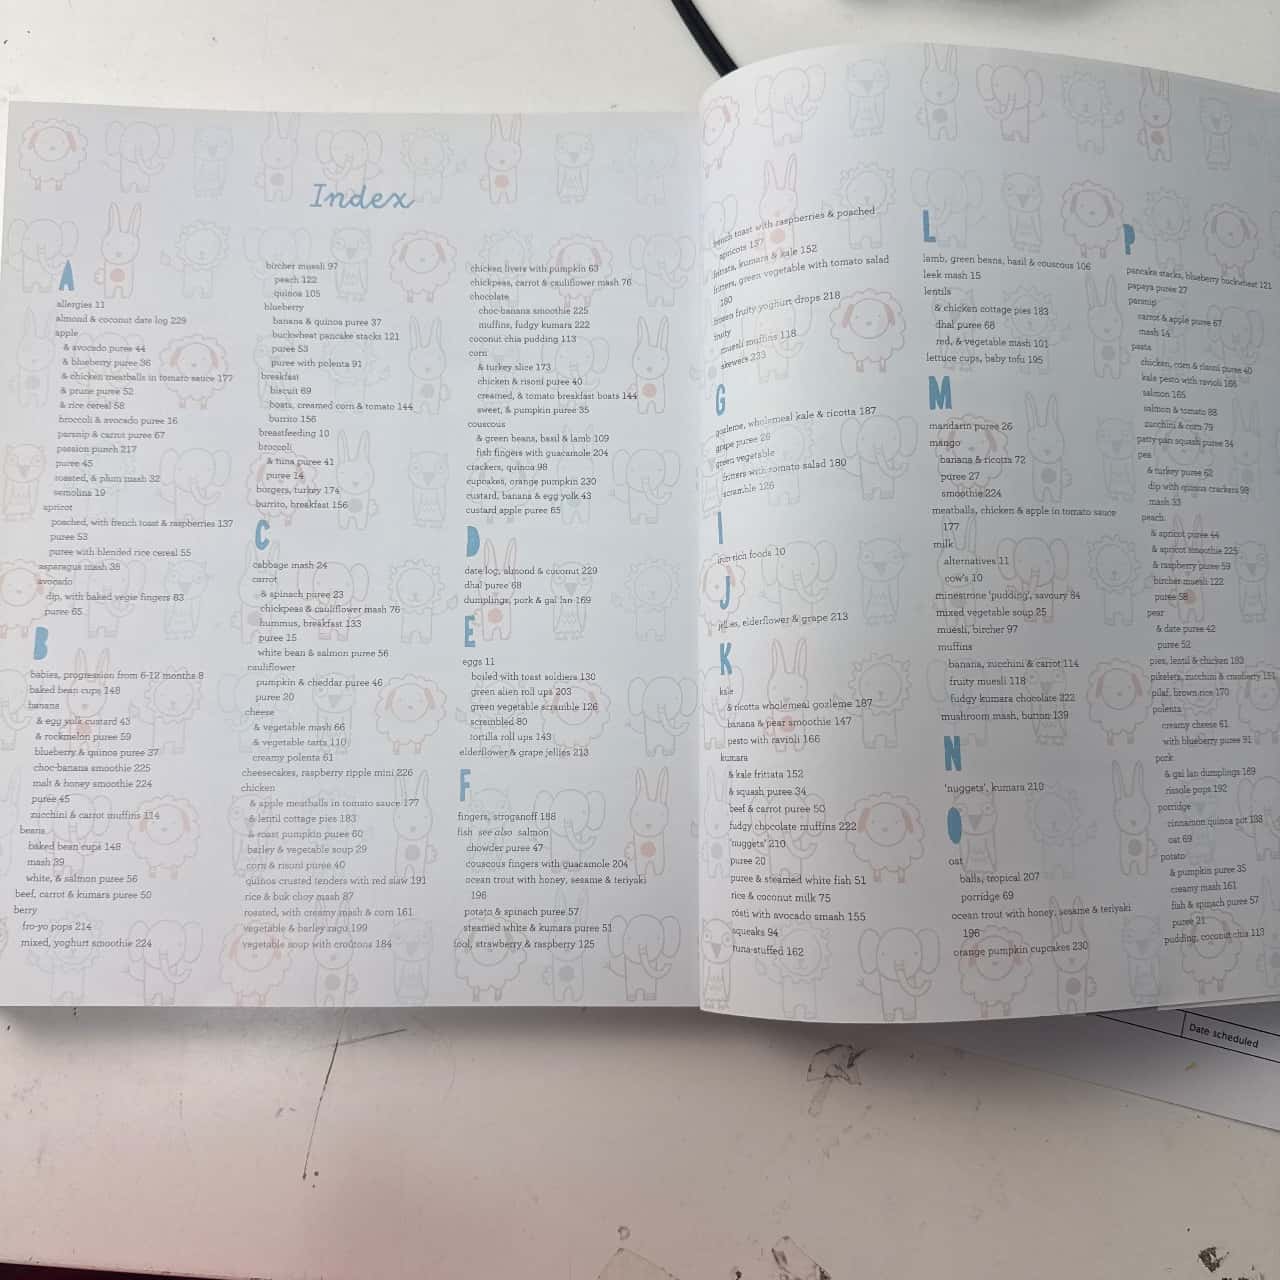 Index
A
allergies 11
almond & coconut date log 229
apple
& avocado puree 44
& blueberry puree 36
& chicken meatballs in tomato sauce 177
& prune puree 52
& rice cereal 58
broccoli & avocado puree 16
parsnip & carrot puree 67
passion punch 217
puree 45
roasted, & plum mash 32
semolina 19
apricot
poached, with french toast & raspberries 137
puree 53
puree with blended rice cereal 55
asparagus mash 38
avocado
dip, with baked vegie fingers 83
puree 65
B
babies, progression from 6-12 months 8
baked bean cups 148
banana
& egg yolk custard 43
& rockmelon puree 59
blueberry & quinoa puree 37
choc-banana smoothie 225
malt & honey smoothie 224
puree 45
zucchini & carrot muffins 114
beans
baked bean cups 148
mash 39
white, & salmon puree 56
beef, carrot & kumara puree 50
berry
fro-yo pops 214
mixed, yoghurt smoothie 224
bircher muesli 97
peach 122
quinoa 105
blueberry
banana & quinoa puree 37
buckwheat pancake stacks 121
puree 53
puree with polenta 91
breakfast
biscuit 69
boats, creamed corn & tomato 144
burrito 156
breastfeeding 10
broccoli
& tuna puree 41
puree 14
burgers, turkey 174
burrito, breakfast 156
C
cabbage mash 24
carrot
& spinach puree 23
chickpeas & cauliflower mash 76
hummus, breakfast 133
puree 15
white bean & salmon puree 56
cauliflower
pumpkin & cheddar puree 46
puree 20
cheese
& vegetable mash 66
& vegetable tarts 110
creamy polenta 61
cheesecakes, raspberry ripple mini 226
chicken
& apple meatballs in tomato sauce 177
& lentil cottage pies 183
& roast pumpkin puree 60
barley & vegetable soup 29
corn & risoni puree 40
quinoa crusted tenders with red slaw 191
rice & buk choy mash 87
roasted, with creamy mash & corn 161
vegetable & barley ragu 199
vegetable soup with croûtons 184
chicken livers with pumpkin 63
chickpeas, carrot & cauliflower mash 76
chocolate
choc-banana smoothie 225
muffins, fudgy kumara 222
coconut chia pudding 113
corn
& turkey slice 173
chicken & risoni puree 40
creamed, & tomato breakfast boats 144
sweet, & pumpkin puree 35
couscous
& green beans, basil & lamb 109
fish fingers with guacamole 204
crackers, quinoa 98
cupcakes, orange pumpkin 230
custard, banana & egg yolk 43
custard apple puree 65
D
date log, almond & coconut 229
dhal puree 68
dumplings, pork & gai lan 169
E
eggs 11
boiled with toast soldiers 130
green alien roll ups 203
green vegetable scramble 126
scrambled 80
tortilla roll ups 143
elderflower & grape jellies 213
F
fingers, stroganoff 188
fish see also salmon
chowder puree 47
couscous fingers with guacamole 204
ocean trout with honey, sesame & teriyaki
196
potato & spinach puree 57
steamed white & kumara puree 51
fool, strawberry & raspberry 125
french toast with raspberries & poached
apricots 137
frittata, kumara & kale 152
fritters, green vegetable with tomato salad
180
frozen fruity yoghurt drops 218
fruity
muesli muffins 118
skewers 233
G
gozleme, wholemeal kale & ricotta 187
grape puree 26
green vegetable
fritters with tomato salad 180
scramble 126
I
iron-rich foods 10
J
jellies, elderflower & grape 213
K
kale
& ricotta wholemeal gozleme 187
banana & pear smoothie 147
pesto with ravioli 166
kumara
& kale frittata 152
& squash puree 34
beef & carrot puree 50
fudgy chocolate muffins 222
'nuggets' 210
puree 20
puree & steamed white fish 51
rice & coconut milk 75
rösti with avocado smash 155
squeaks 94
tuna-stuffed 162
L
lamb, green beans, basil & couscous 106
leek mash 15
lentils
& chicken cottage pies 183
dhal puree 68
red, & vegetable mash 101
lettuce cups, baby tofu 195
M
mandarin puree 26
mango
banana & ricotta 72
puree 27
smoothie 224
meatballs, chicken & apple in tomato sauce
177
milk
alternatives 11
cow's 10
minestrone 'pudding', savoury 84
mixed vegetable soup 25
muesli, bircher 97
muffins
banana, zucchini & carrot 114
fruity muesli 118
fudgy kumara chocolate 222
mushroom mash, button 139
N
'nuggets', kumara 210
O
oat
balls, tropical 207
porridge 69
ocean trout with honey, sesame & teriyaki
196
orange pumpkin cupcakes 230
P
pancake stacks, blueberry buckwheat 121
papaya puree 27
parsnip
carrot & apple puree 67
mash 14
pasta
chicken, corn & risoni puree 40
kale pesto with ravioli 166
salmon 165
salmon & tomato 88
zucchini & corn 79
patty-pan squash puree 34
pea
& turkey puree 62
dip with quinoa crackers 98
mash 33
peach
& apricot puree 44
& apricot smoothie 225
& raspberry puree 59
bircher muesli 122
puree 58
pear
& date puree 42
puree 52
pies, lentil & chicken 183
pikelets, zucchini & cranberry 151
pilaf, brown rice 170
polenta
creamy cheese 61
with blueberry puree 91
pork
& gai lan dumplings 169
rissole pops 192
porridge
cinnamon quinoa pot 138
oat 69
potato
& pumpkin puree 35
creamy mash 161
fish & spinach puree 57
puree 21
pudding, coconut chia 113
Date scheduled